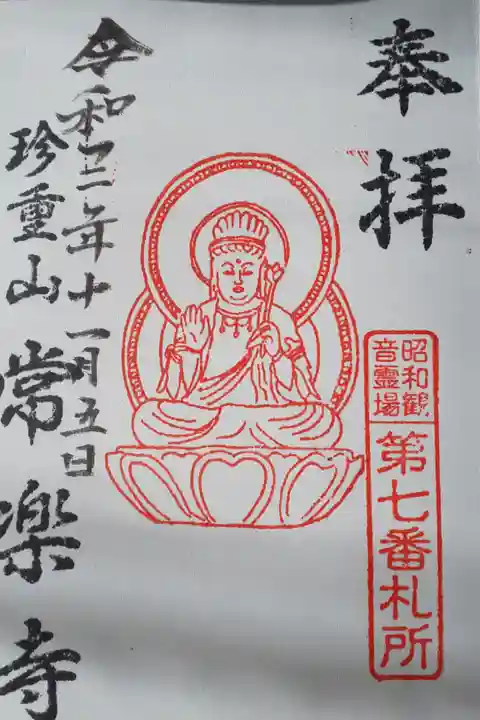 奉拝
昭和観
音靈場
第七番札所
令和三年十一月五日
珍重山
常楽寺